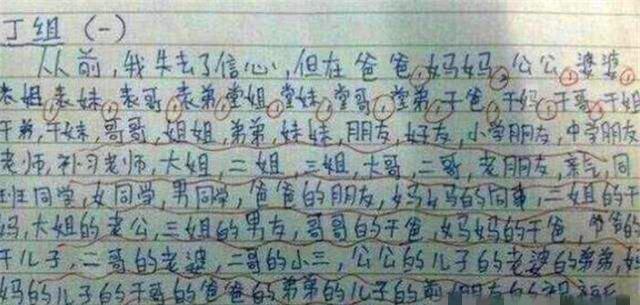 丁组 (一)
从前,我失去了信心,但在爸爸,妈妈,公公,婆婆,
表姐,表妹,表哥,表弟,堂姐,堂妹,堂哥,堂弟,干爸,干妈,干哥,干姐
干弟,干妹,哥哥,姐姐,弟弟,妹妹,朋友,好友,小学朋友,中学朋友
老师,补习老师,大姐,二姐,三姐,大哥,二哥,老朋友,亲戚,同
班同学,女同学,男同学,爸爸的朋友,妈妈的同事,二姐的干
妈,大姐的老公,三姐的男友,哥哥的干爸,妈妈的干爸,爷爷的
干儿子,二哥的老婆,二哥的小三,公公的儿子的老婆的弟弟,妈
妈的儿子的干哥的爸爸的弟弟的儿子的前